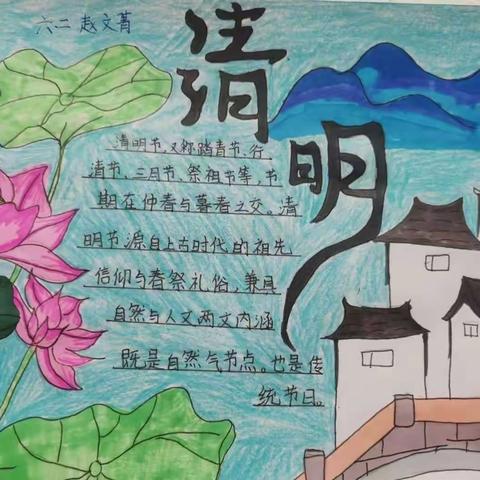 六二 赵文菁
清明
清明节,又称踏青节、行
清节、三月节、祭祖节等,节
期在仲春与暮春之交。清
明节源自上古时代的祖先
信仰与春祭礼俗,兼具
自然与人文两文内涵
既是自然气节点。也是传
统节日。